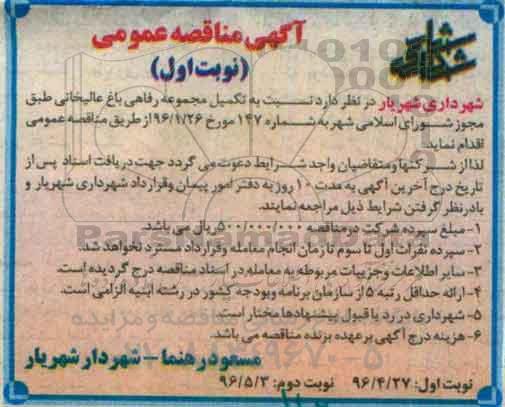 آگهی مناقصه عمومی
(نوبت اول)
شهرداری شهریار
شهرداری شهریار در نظر دارد نسبت به تکمیل مجموعه رفاهی باغ عالیخانی طبق
مجوز شورای اسلامی شهر به شماره ۱۴۷ مورخ ۹۶/۱/۲۶ از طریق مناقصه عمومی
اقدام نماید.
لذا از شرکتها و متقاضیان واجد شرایط دعوت می گردد جهت دریافت اسناد پس از
تاریخ درج آخرین آگهی به مدت ۱۰ روز به دفتر امور پیمان و قرارداد شهرداری شهریار و
بادر نظر گرفتن شرایط ذیل مراجعه نمایند.
۱- مبلغ سپرده شرکت در مناقصه ۵۰۰/۰۰۰/۰۰۰ ریال می باشد.
۲- سپرده نفرات اول تا سوم تا زمان انجام معامله و قرارداد مسترد نخواهد شد.
۳- سایر اطلاعات و جزییات مربوطه به معامله در اسناد مناقصه درج گردیده است.
۴- ارائه حداقل رتبه ۵ از سازمان برنامه و بودجه کشور در رشته ابنیه الزامی است.
۵- شهرداری در رد یا قبول پیشنهادها مختار است.
۶- هزینه درج آگهی بر عهده برنده مناقصه می باشد.
مسعود رهنما - شهردار شهریار
نوبت اول: ۹۶/۴/۲۷ نوبت دوم: ۹۶/۵/۳